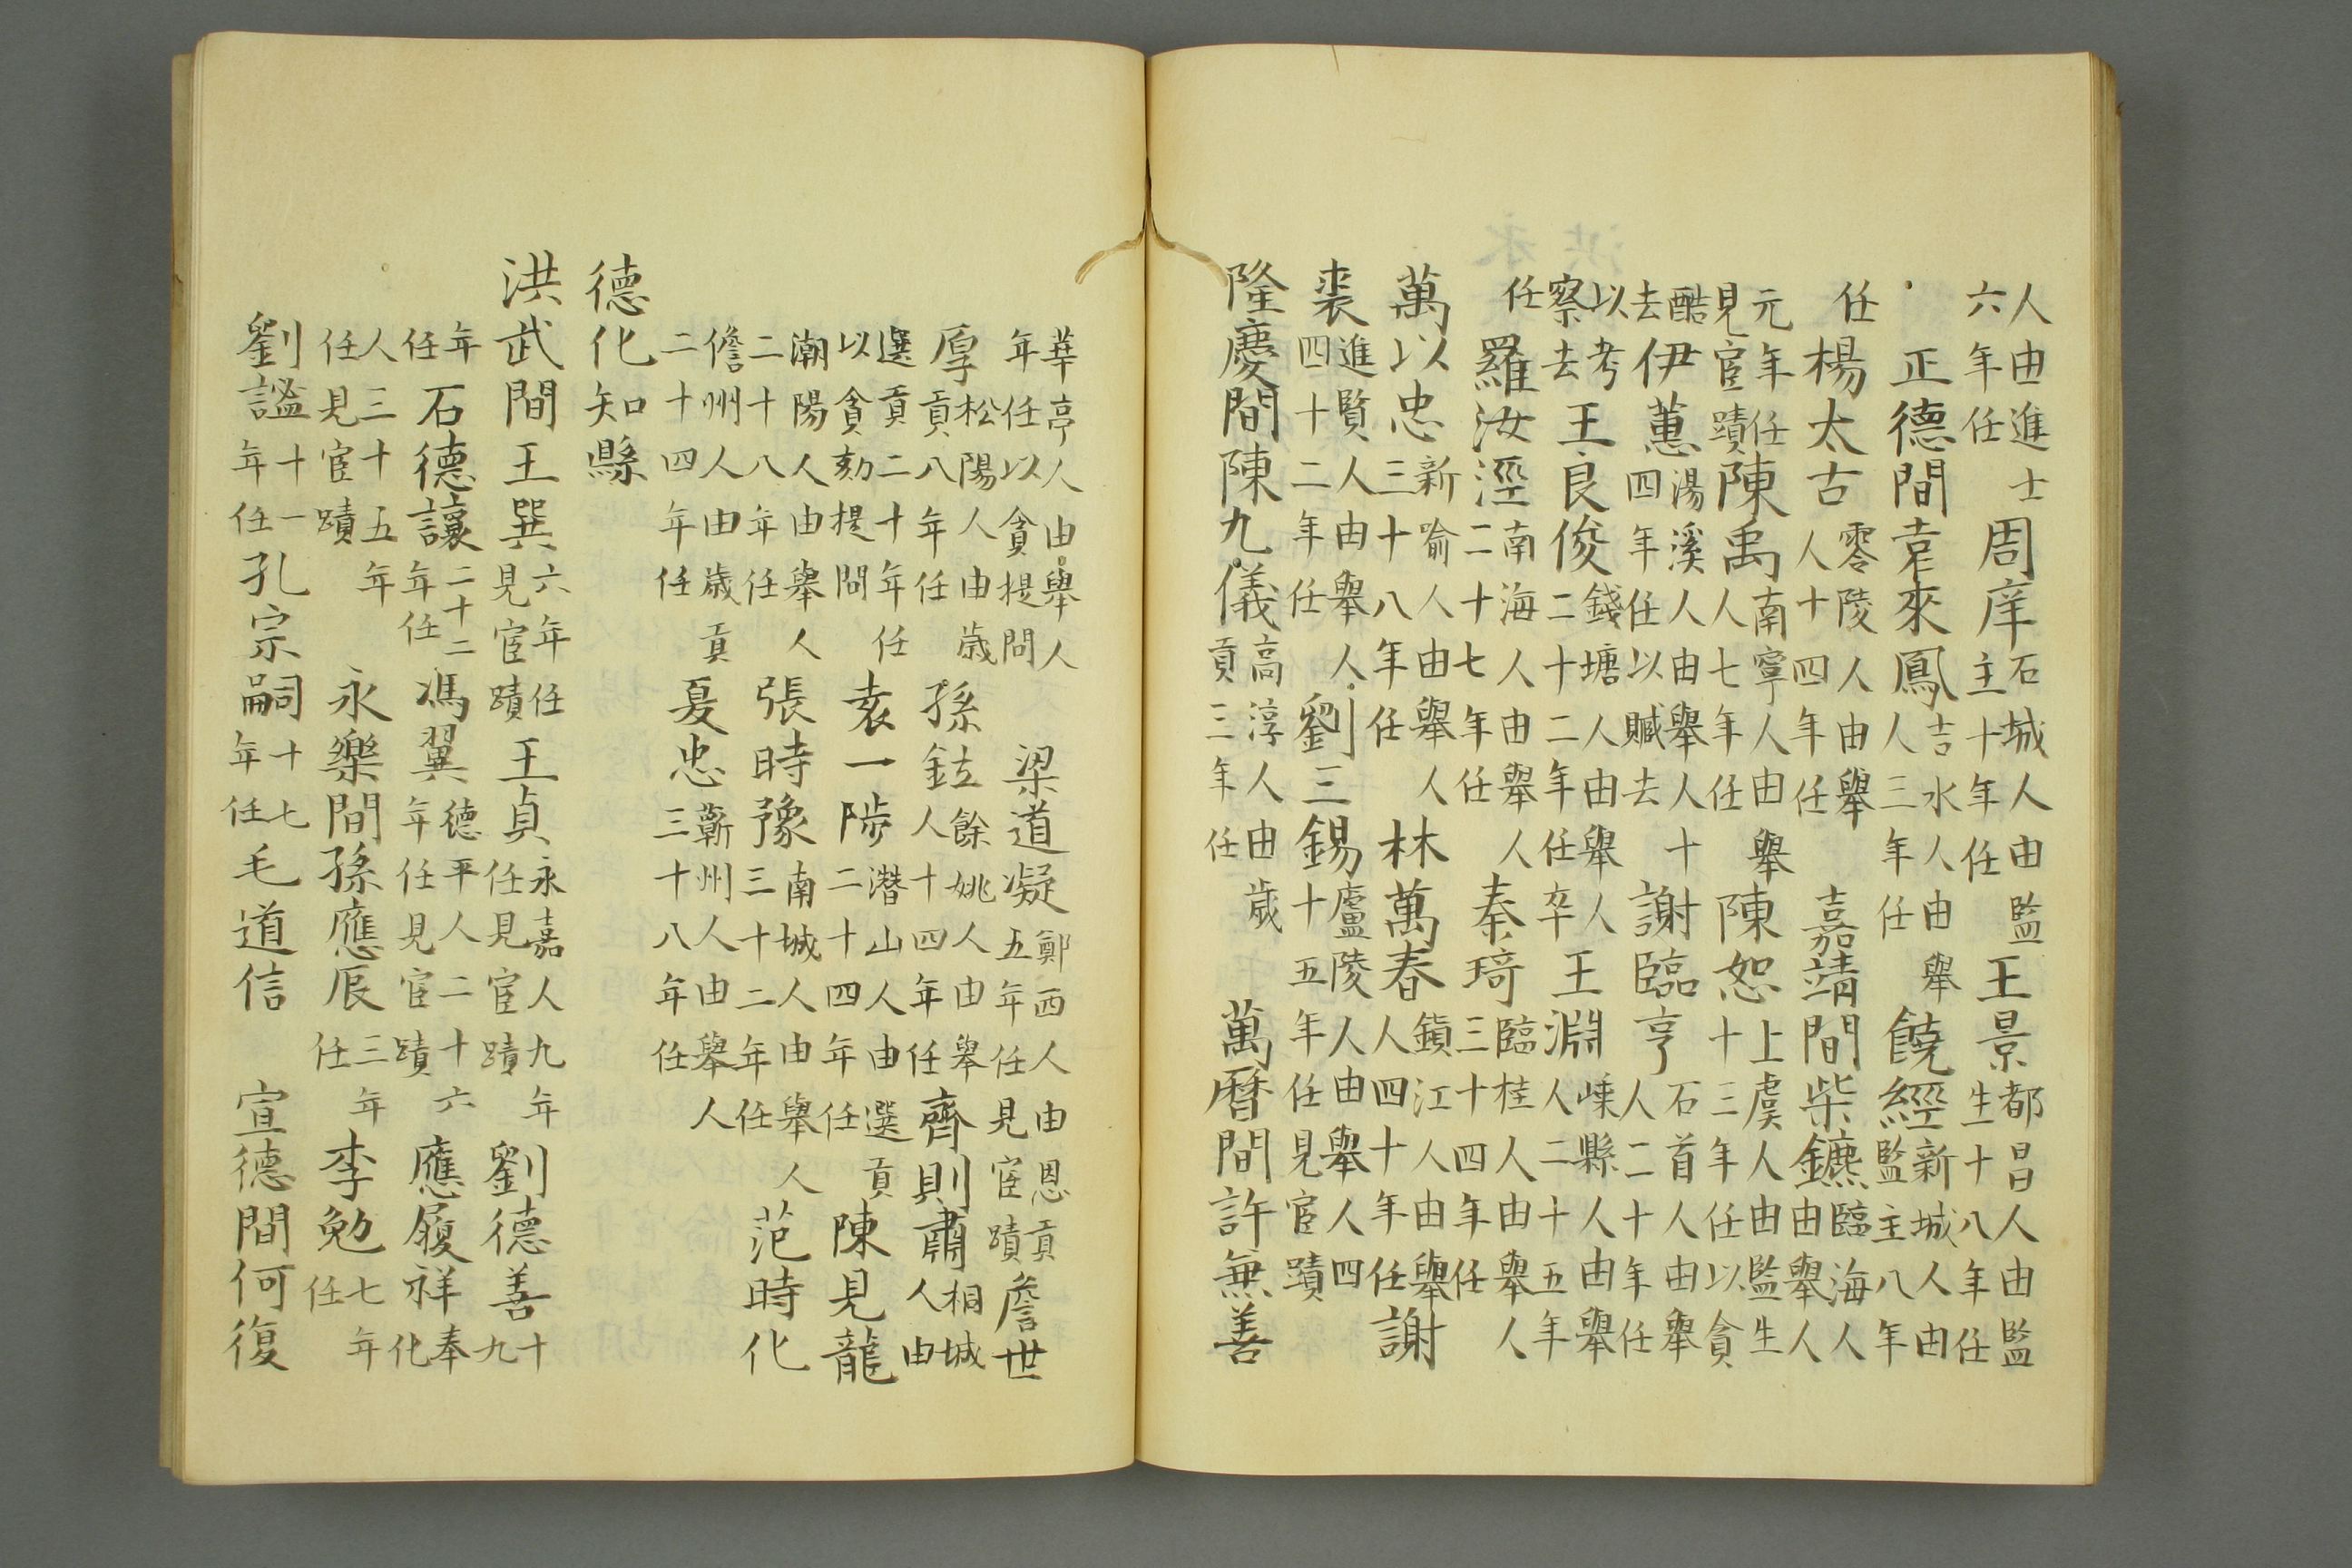 人由進士六年任周庠石城人由監主十年任王景都昌人由監生十八年任
正德間袁來鳳吉水人由舉人三年任饒經新城人由監主八年
任楊太古零陵人由舉人十四年任嘉靖間柴鑣臨海人由舉人
元年任見宦蹟陳禹南寧人由舉人七年任陳恕上虞人由監生十三年任以貪
酷去伊蕙湯溪人由舉人十四年任以贓去謝臨亨石首人由舉人二十年任
以考察去王良俊錢塘人由舉人二十二年任卒王淵嵊縣人由舉人二十五年
任羅汝涇南海人由舉人二十七年任秦琦臨桂人由舉人三十四年任
萬以忠新喻人由舉人三十八年任林萬春鎮江人由舉人四十年任謝
裘進賢人由舉人四十二年任劉三錫廬陵人由舉人四十五年任見宦蹟
隆慶間陳九儀高淳人由歲貢三年任萬曆間許無善
華亭人由舉人年任以貪提問梁道凝鄖西人由恩貢五年任見宦蹟詹世
厚松陽人由歲貢八年任孫鉉餘姚人由舉人十四年任齊則肅桐城人由
選貢二十年任以貪劾提問袁一陟潛山人由選貢二十四年任陳見龍
潮陽人由舉人二十八年任張時豫南城人由舉人三十二年任范時化
儋州人由歲貢二十四年任夏忠蘄州人由舉人三十八年任
德化知縣
洪武間王巽六年任見宦蹟王貞永嘉人九年任見宦蹟劉德善十九
年任石德讓二十二年任馮翼德平人二十六年任見宦蹟應履祥奉化
人三十五年任見宦蹟永樂間孫應辰三年任李勉七年任
劉謐十一年任孔宗嗣十七年任毛道信宣德間何復